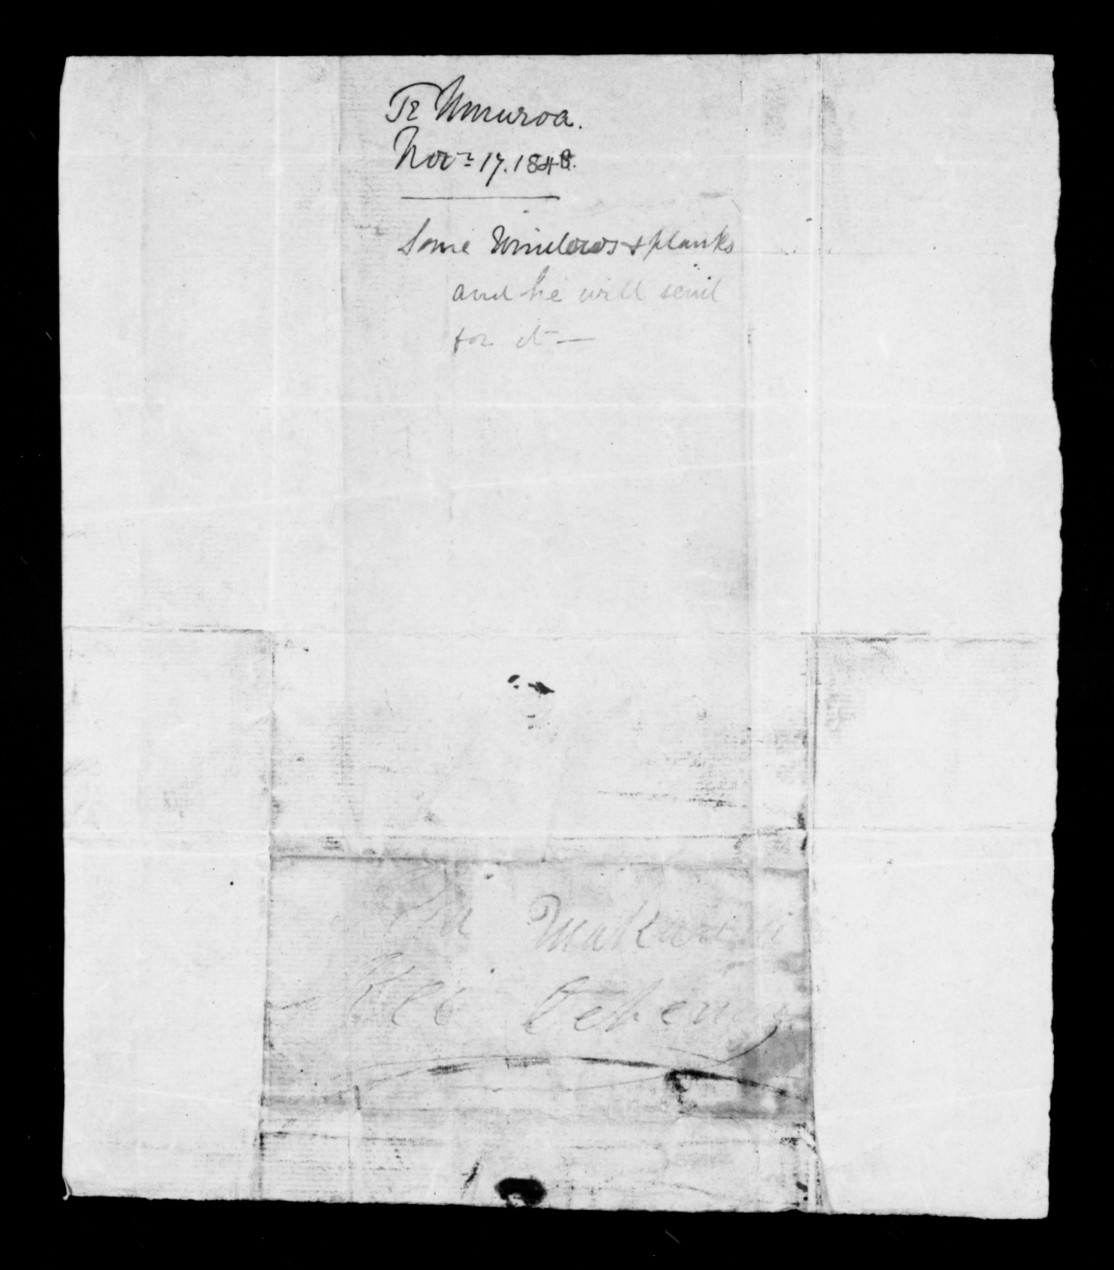 Te Umuroa.
Novr 17. 1848.
Some Windows & planks
and he will send
for it —
Ma Makarini
Kei